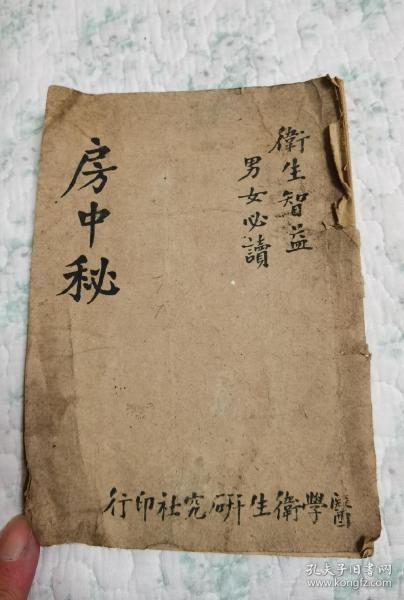 衛生智益
男女必讀
房中秘
醫學衛生研究社印行
孔夫子旧书网
www.kongfz.com